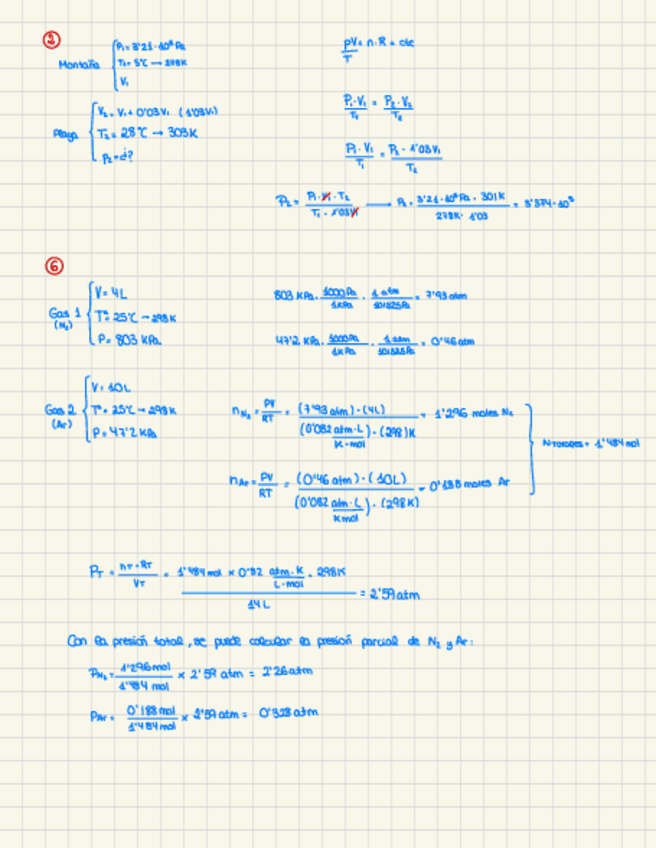 5
Montaña
P₁ = 3'21 · 10⁵ Pa
T₁ = 5°C → 278K
V₁
Playa
V₂ = V₁ + 0'03 V₁ (1'03 V₁)
T₂ = 28°C → 303K
P₂ = ¿?
PV/T = n · R = cte
P₁ · V₁/T₁ = P₂ · V₂/T₂
P₁ · V₁/T₁ = P₂ · 1'03 V₁/T₂
P₂ = P₁ · V₁ · T₂/T₁ · 1'03 V₁ → P₂ = 3'21 · 10⁵ Pa · 301K/278K · 1'03 = 3'374 · 10⁵
6
Gas 1 (N₂)
V = 4L
Tª = 25°C → 298K
P = 803 KPa
803 KPa · 1000 Pa/1 KPa · 1 atm/101325 Pa = 7'93 atm
47'2 KPa · 1000 Pa/1 KPa · 1 atm/101325 Pa = 0'46 atm
Gas 2 (Ar)
V = 10L
Tª = 25°C → 298K
P = 47'2 KPa
n N₂ = PV/RT = (7'93 atm) · (4L)/(0'082 atm·L/K·mol) · (298)K = 1'296 moles N₂
n Ar = PV/RT = (0'46 atm) · (10L)/(0'082 atm·L/K mol) · (298K) = 0'188 moles Ar
n TOTALES = 1'484 mol
P_T = n_T · RT/V_T = 1'484 mol × 0'82 atm·K/L·mol · 298K/14L = 2'59 atm
Con la presión total, se puede calcular la presión parcial de N₂ y Ar:
P N₂ = 1'296 mol/1'484 mol × 2'59 atm = 2'26 atm
P Ar = 0'188 mol/1'484 mol × 2'59 atm = 0'328 atm